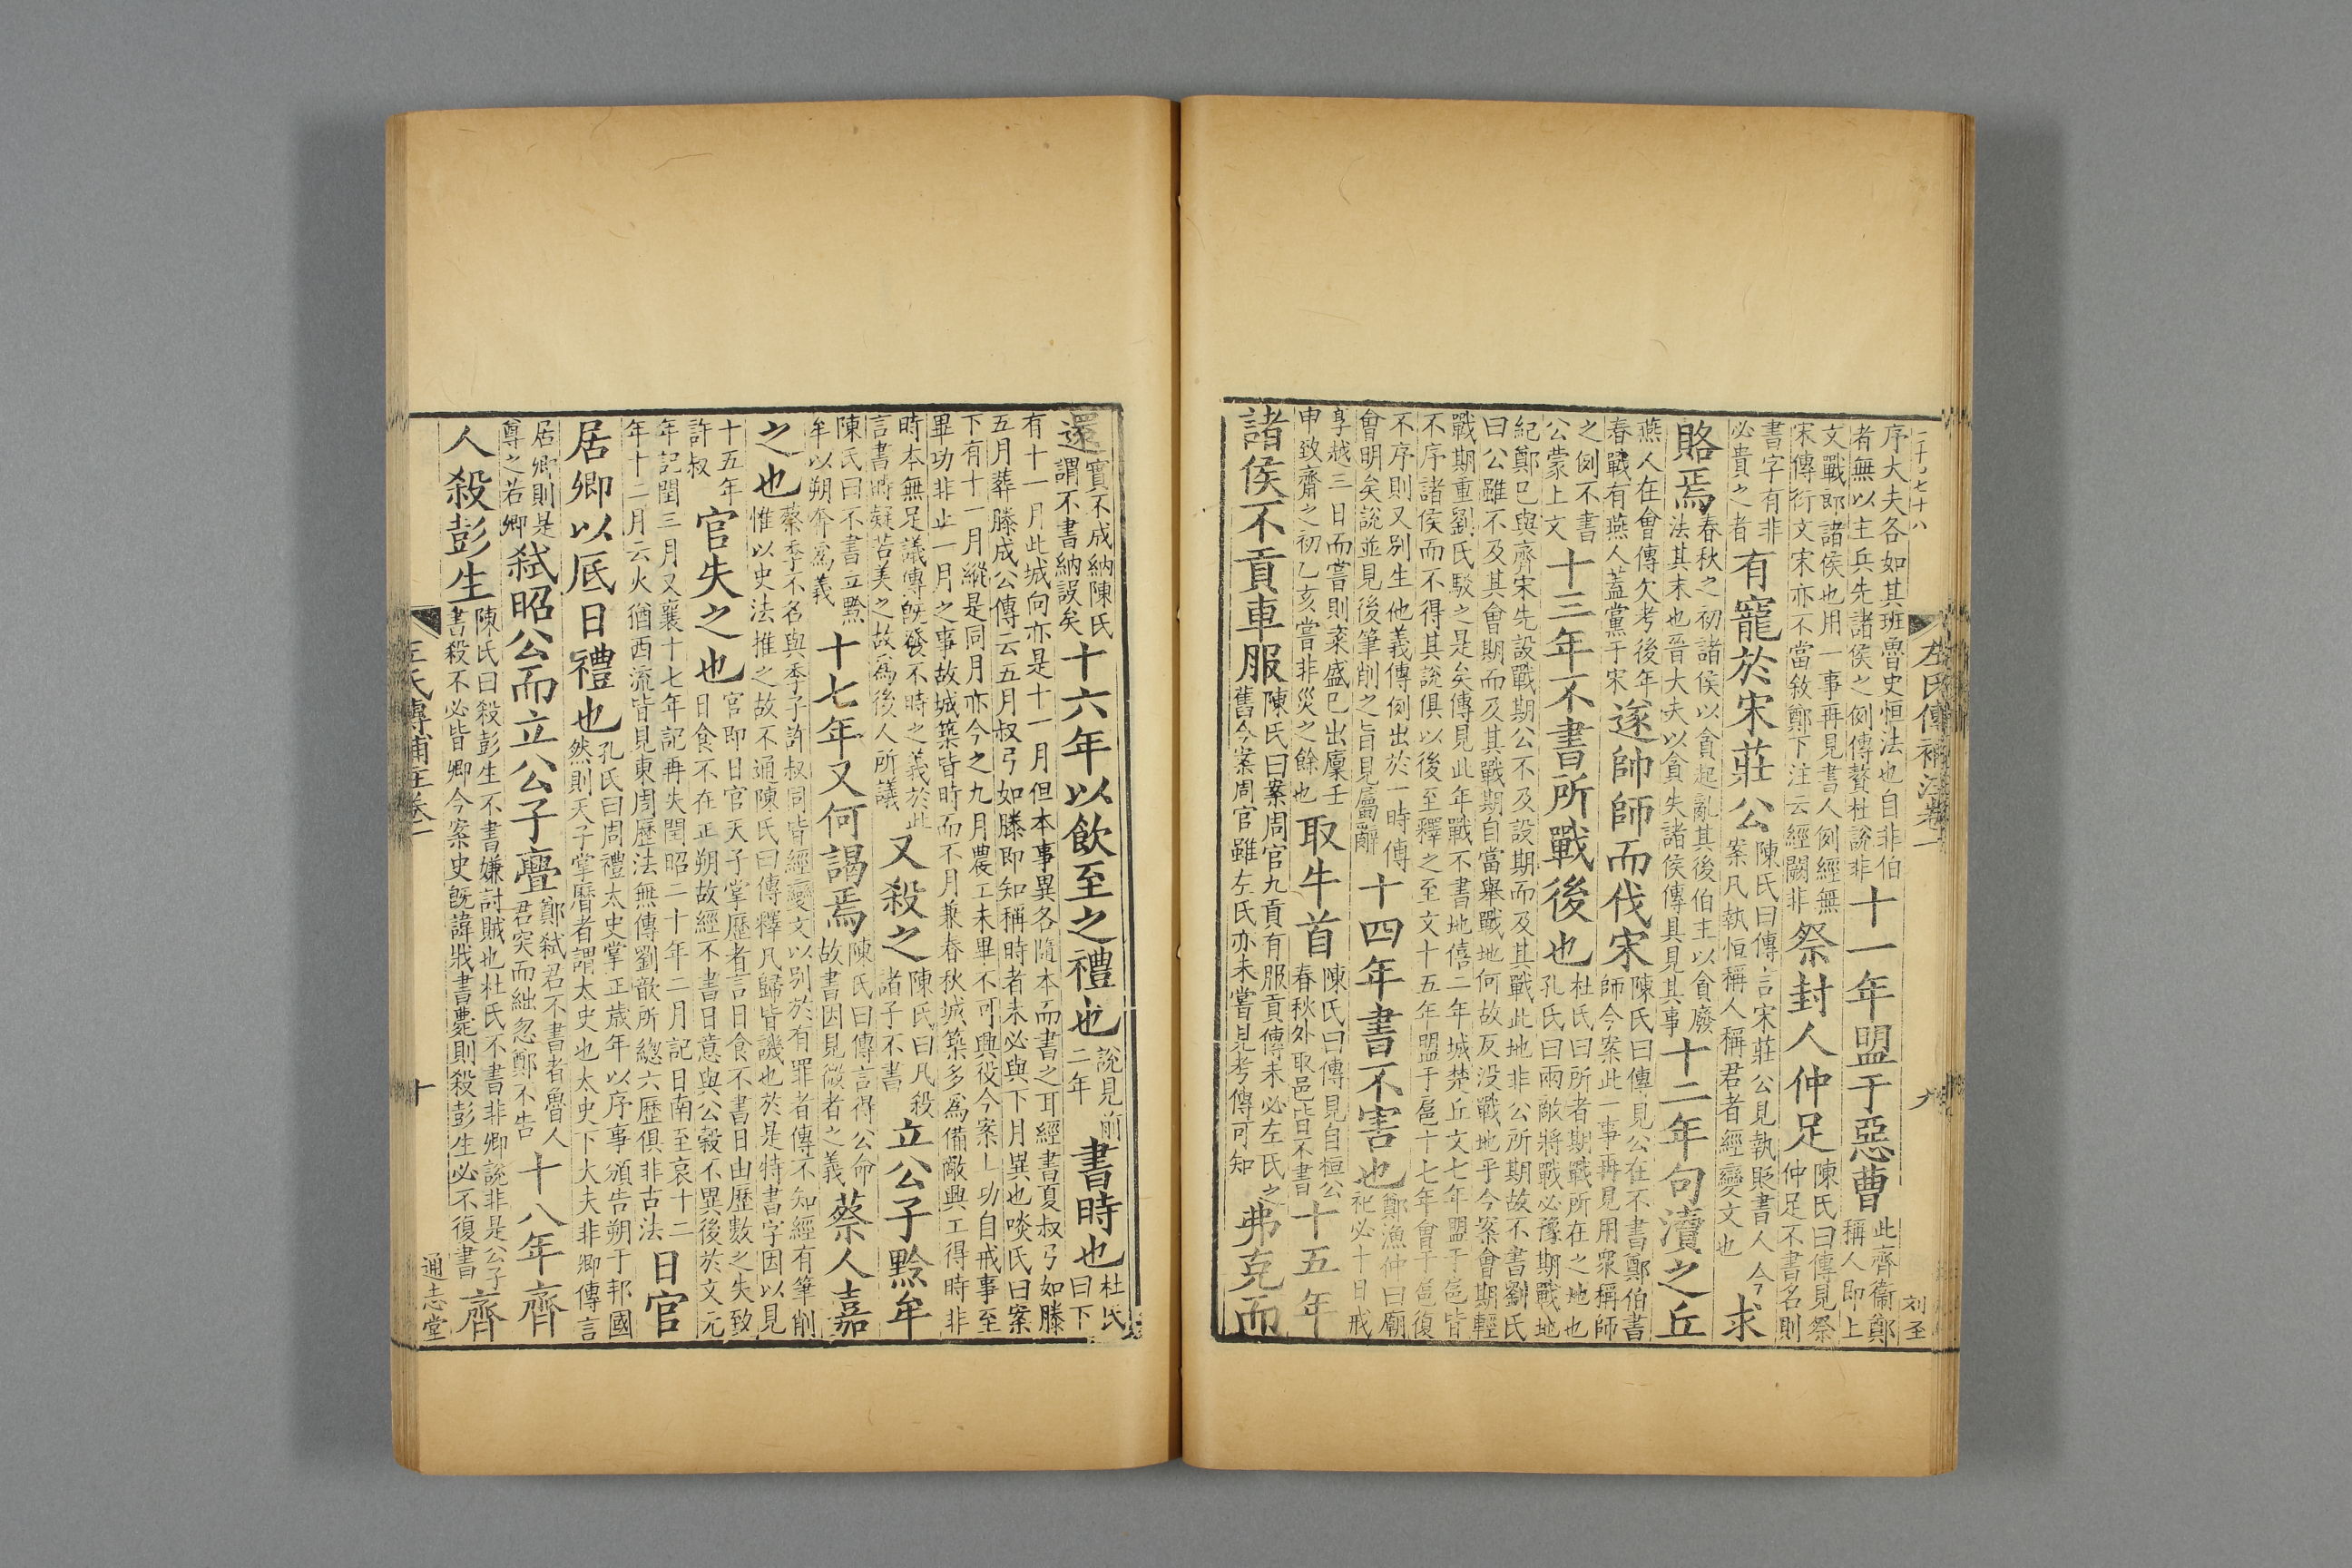 二千〇七十八
左氏傳補注卷一
九
刘圣
序大夫各如其班魯史恒法也自非伯
者無以主兵先諸侯之例傳贅杜說非
十一年盟于惡曹
此齊衞鄭
稱人即上
文戰郎諸侯也用一事再見書人例經無
宋傳衍文宋亦不當敘鄭下注云經闕非
祭封人仲足
陳氏曰傳見祭
仲足不書名則
書字有非
必貴之者
有寵於宋莊公
陳氏曰傳言宋莊公見執貶書人今
案凡執恒稱人稱君者經變文也
求
賂焉
春秋之初諸侯以貪起亂其後伯主以貪廢
法其末也晉大夫以貪失諸侯傳具見其事
十二年句瀆之丘
燕人在會傳欠考後年
春戰有燕人蓋黨于宋
遂帥師而伐宋
陳氏曰傳見公在不書鄭伯書
師今案此一事再見用衆稱師
之例不書
公蒙上文
十三年不書所戰後也
杜氏曰所者期戰所在之地也
孔氏曰兩敵將戰必豫期戰地
紀鄭已與齊宋先設戰期公不及設期而及其戰此地非公所期故不書劉氏
曰公雖不及其會期而及其戰期自當舉戰地何故反没戰地乎今案會期輕
戰期重劉氏駁之是矣傳見此年戰不書地僖二年城楚丘文七年盟于扈皆
不序諸侯而不得其說俱以後至釋之至文十五年盟于扈十七年會于扈復
不序則又别生他義傳例出於一時傳
會明矣說並見後筆削之旨見屬辭
十四年書不害也
鄭漁仲曰廟
祀必十日戒
享越三日而嘗則粢盛已出廩壬
申致齋之初乙亥嘗非災之餘也
取牛首
陳氏曰傳見自桓公
春秋外取邑皆不書
十五年
諸侯不貢車服
陳氏曰案周官九貢有服貢傳未必左氏之
舊今案周官雖左氏亦未嘗見考傳可知
弗克而
還
實不成納陳氏
謂不書納誤矣
十六年以飲至之禮也
說見前
二年
書時也
杜氏
曰下
有十一月此城向亦是十一月但本事異各隨本而書之耳經書夏叔弓如滕
五月葬滕成公傳云五月叔弓如滕即知稱時者未必與下月異也啖氏曰案
下有十一月縱是同月亦今之九月農工未畢不可興役今案土功自戒事至
畢功非止一月之事故城築皆時而不月兼春秋城築多爲備敵興工得時非
時本無足議傳旣發不時之義於此
言書時疑若美之故爲後人所議
又殺之
陳氏曰凡殺
諸子不書
立公子黔牟
陳氏曰不書立黔
牟以朔奔爲義
十七年又何謁焉
陳氏曰傳言得公命
故書因見微者之義
蔡人嘉
之也
蔡季不名與季子許叔同皆經變文以别於有罪者傳不知經有筆削
惟以史法推之故不通陳氏曰傳釋凡歸皆譏也於是特書字因以見
十五年
許叔
官失之也
官即日官天子掌歷者言日食不書日由歷數之失致
日食不在正朔故經不書日意與公穀不異後於文元
年記閏三月又襄十七年記再失閏昭二十年二月記日南至哀十二
年十二月云火猶西流皆見東周歷法無傳劉歆所總六歷俱非古法
日官
居卿以厎日禮也
孔氏曰周禮太史掌正歲年以序事頒告朔于邦國
然則天子掌曆者謂太史也太史下大夫非卿傳言
居卿則是
尊之若卿
弑昭公而立公子亹
鄭弑君不書者魯人
君突而絀忽鄭不告
十八年齊
人殺彭生
陳氏曰殺彭生不書嫌討賊也杜氏不書非卿說非是公子
書殺不必皆卿今案史旣諱戕書薨則殺彭生必不復書
齊
左氏傳補注卷一
十
通志堂